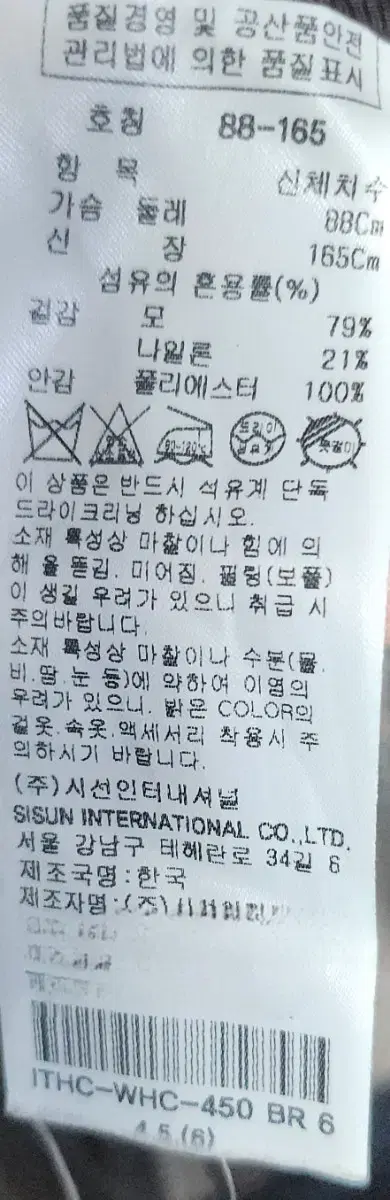 품질경영 및 공산품안전
관리법에 의한 품질표시
호칭 88-165
항 목 신체치수
가슴 둘레 88Cm
신 장 165Cm
섬유의 혼용률(%)
겉감 모 79%
나일론 21%
안감 폴리에스터 100%
80-120℃ 드라이
이 상품은 반드시 석유계 단독
드라이크리닝 하십시오.
소재 특성상 마찰이나 힘에 의
해 올 뜯김. 미어짐. 필링(보풀)
이 생길 우려가 있으니 취급 시
주의바랍니다.
소재 특성상 마찰이나 수분(물.
비.땀.눈 등)에 약하여 이염의
우려가 있으니. 밝은 COLOR의
겉옷.속옷.액세서리 착용시 주
의하시기 바랍니다.
(주)시선인터내셔널
SISUN INTERNATIONAL CO.,LTD.
서울 강남구 테헤란로 34길 6
제조국명:한국
제조자명:(주)
ITHC-WHC-450 BR 6
4.5.(6)